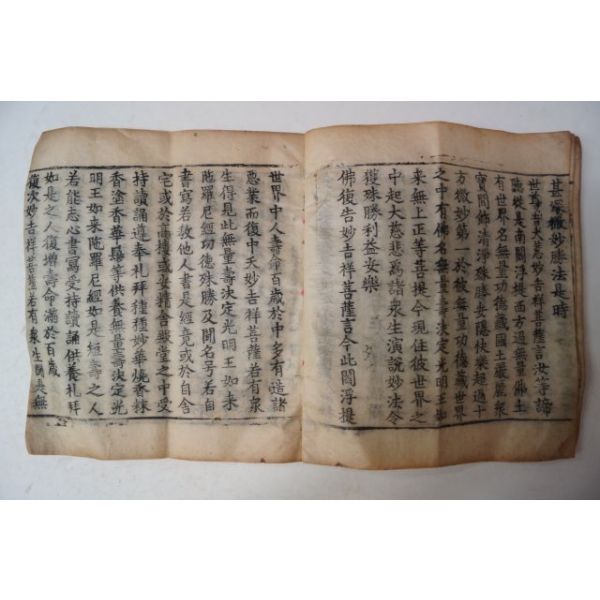 甚深微妙勝法是時
世尊大慈妙吉祥菩薩言汝等諦
聽從是南閻浮提西方過無量佛土
有世界名無量功德藏國土嚴麗衆
寶間飾清淨殊勝安隱快樂超過十
方微妙第一於彼無量功德藏世界
之中有佛名無量壽決定光明王如
來無上正等菩提今現住彼世界之
中起大慈悲爲諸衆生演說妙法令
獲殊勝利益安樂
佛復告妙吉祥菩薩言今此閻浮提
世界中人壽命百歲於中多有造諸
惡業而復中夭妙吉祥菩薩若有衆
生得見此無量壽決定光明王如来
陁羅尼經功德殊勝及聞名号若自
書寫若教他人書是經竟或於自舍
宅或於高樓或安精舍殿堂之中受
持讀誦遵奉礼拜種種妙華燒香粖
香塗香華鬘等供養無量壽決定光
明王如来陁羅尼經如是短壽之人
若能志心書寫受持讀誦供養礼拜
如是之人復增壽命滿於百歲
復次妙吉祥菩薩若有衆生聞是無